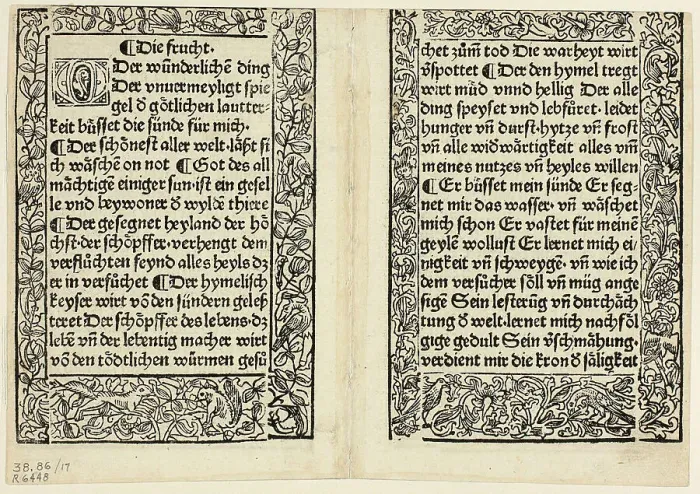 ¶ Die frucht.
O Der wunderlichẽ ding
Der vnuermeyligt spie
gel d̕ götlichen lautter-
keit büsset die sünde für mich.
¶ Der schönest aller welt. laßt si
ch wäschẽ on not ¶ Got des all
mächtigẽ einiger sun. ist ein gesel
le vnd beywoner d̕ wyldẽ thiere
¶ Der gesegnet heyland der hö
chst. der schöpffer. verhengt dem
verflüchten feynd alles heyls dz
er in versüchet ¶ Der hymelisch
keyser wirt võ den sündern geles
teret Der schöpffer des lebens. dz
lebẽ vñ der lebentig macher wirt
võ den tödtlichen würmen gesü
chet zům tod Die warheyt wirt
v̕spottet ¶ Der den hymel tregt
wirt müd vnnd hellig Der alle
ding speyset vnd lebfüret. leidet
hunger vñ durst. hytze vñ frost
vñ alle widwärtigkeit alles vm̃
meines nutzes vñ heyles willen
¶ Er büsset mein sünde Er seg-
net mir das wasser. vñ wäschet
mich schon Er vastet für meinẽ
geylẽ wollust Er lernet mich ei-
nigkeit vñ schweygẽ. vñ wie ich
dem versücher söll vñ müg ange
sigẽ Sein lesterũg vñ durchäch
tung d̕ welt. lernet mich nachföl
gige gedult Sein v̕schmähung.
verdient mir die kron d̕ säligkeit
38.86/17
R6448